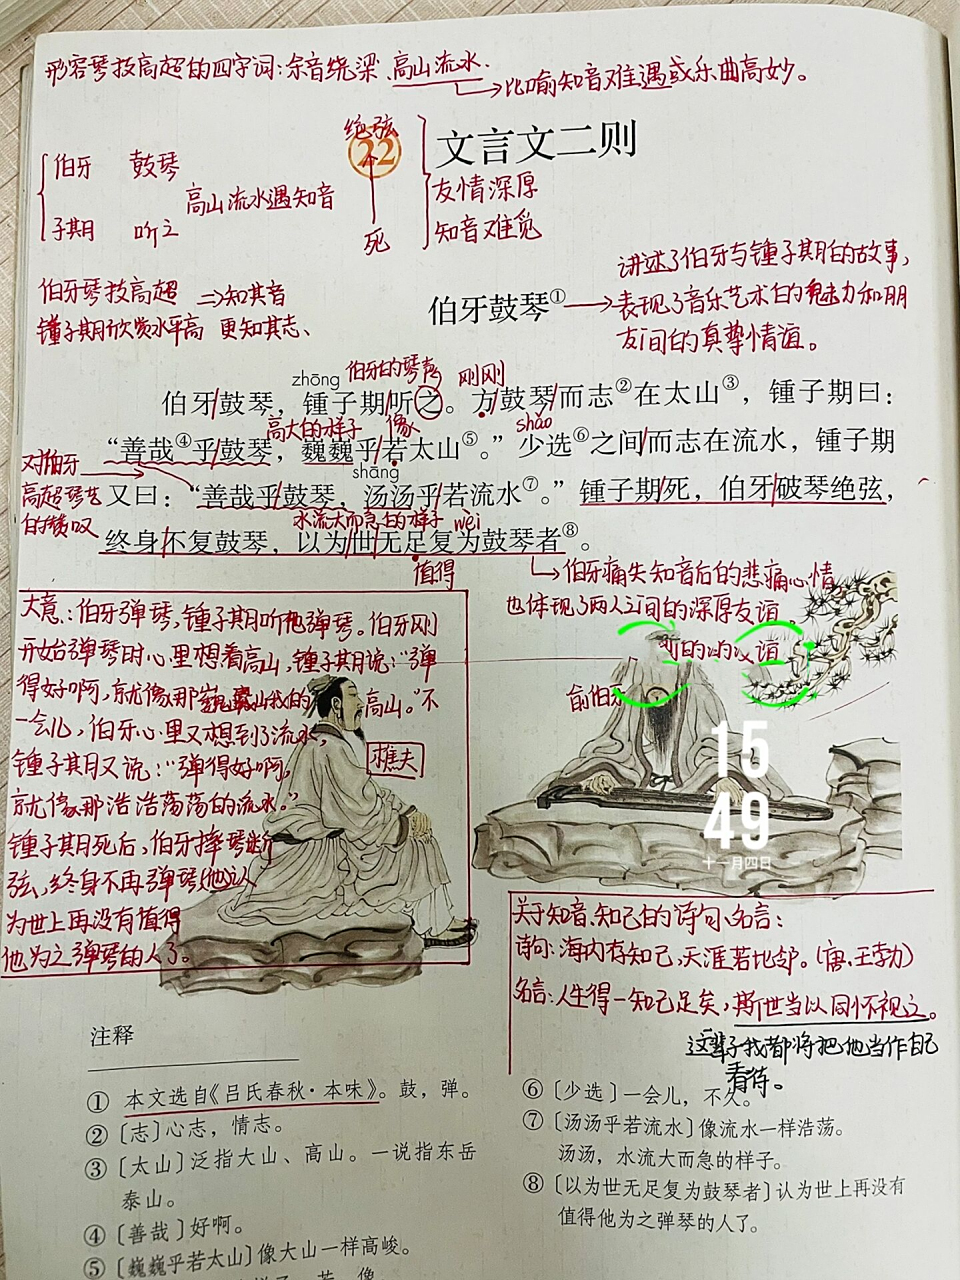 形容琴技高超的四字词：余音绕梁、高山流水.
比喻知音难遇或乐曲高妙。
绝弦
22
文言文二则
伯牙 鼓琴
高山流水遇知音
子期 听之
死
友情深厚
知音难觅
伯牙琴技高超 ⇒知其音
锺子期欣赏水平高 更知其志、
伯牙鼓琴①
讲述了伯牙与锺子期的故事，
表现了音乐艺术的魅力和朋
友间的真挚情谊。
zhōng 伯牙的琴声 刚刚
伯牙/鼓琴，锺子期/听之。方/鼓琴/而志②在太山③，锺子期曰：
高大的样子 像 shǎo
“善哉④乎/鼓琴，巍巍乎/若太山⑤。”少选⑥之间/而志在流水，锺子期
对伯牙
高超琴艺
的赞叹
shāng
又曰：“善哉乎/鼓琴，汤汤乎/若流水⑦。”锺子期/死，伯牙/破琴绝弦，
水流大而急的样子 wèi
终身/不复鼓琴，以为/世/无足复为鼓琴者⑧。
值得
伯牙痛失知音后的悲痛心情
也体现了两人之间的深厚友谊。
大意：伯牙弹琴，锺子期听他弹琴。伯牙刚
开始弹琴时心里想着高山，锺子期说：“弹
得好啊，就像那巍巍 高山。”不
一会儿，伯牙心里又想到了流水，
锺子期又说：“弹得好啊，
就像那浩浩荡荡的流水。”
锺子期死后，伯牙摔琴断
弦，终身不再弹琴，他认
为世上再没有值得
他为之弹琴的人了。
樵夫
俞伯牙
15
49
十一月四日
关于知音、知己的诗句、名言：
诗句：海内存知己，天涯若比邻。（唐.王勃）
名言：人生得一知己足矣，斯世当以同怀视之。
这辈子我都将把他当作自己
看待。
注释
① 本文选自《吕氏春秋·本味》。鼓，弹。
② 〔志〕心志，情志。
③ 〔太山〕泛指大山、高山。一说指东岳
泰山。
④ 〔善哉〕好啊。
⑤ 〔巍巍乎若太山〕像大山一样高峻。
⑥ 〔少选〕一会儿，不久。
⑦ 〔汤汤乎若流水〕像流水一样浩荡。
汤汤，水流大而急的样子。
⑧ 〔以为世无足复为鼓琴者〕认为世上再没有
值得他为之弹琴的人了。